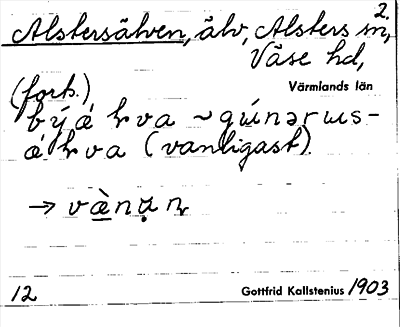 2.
Alstersälven, älv, Alsters sn,
Väse hd,
Värmlands län
(forts.)
bý á ɫva ~ gɯ́nərɯs-
á ɫva (vanligast).
→ vànạn
12
Gottfrid Kallstenius 1903